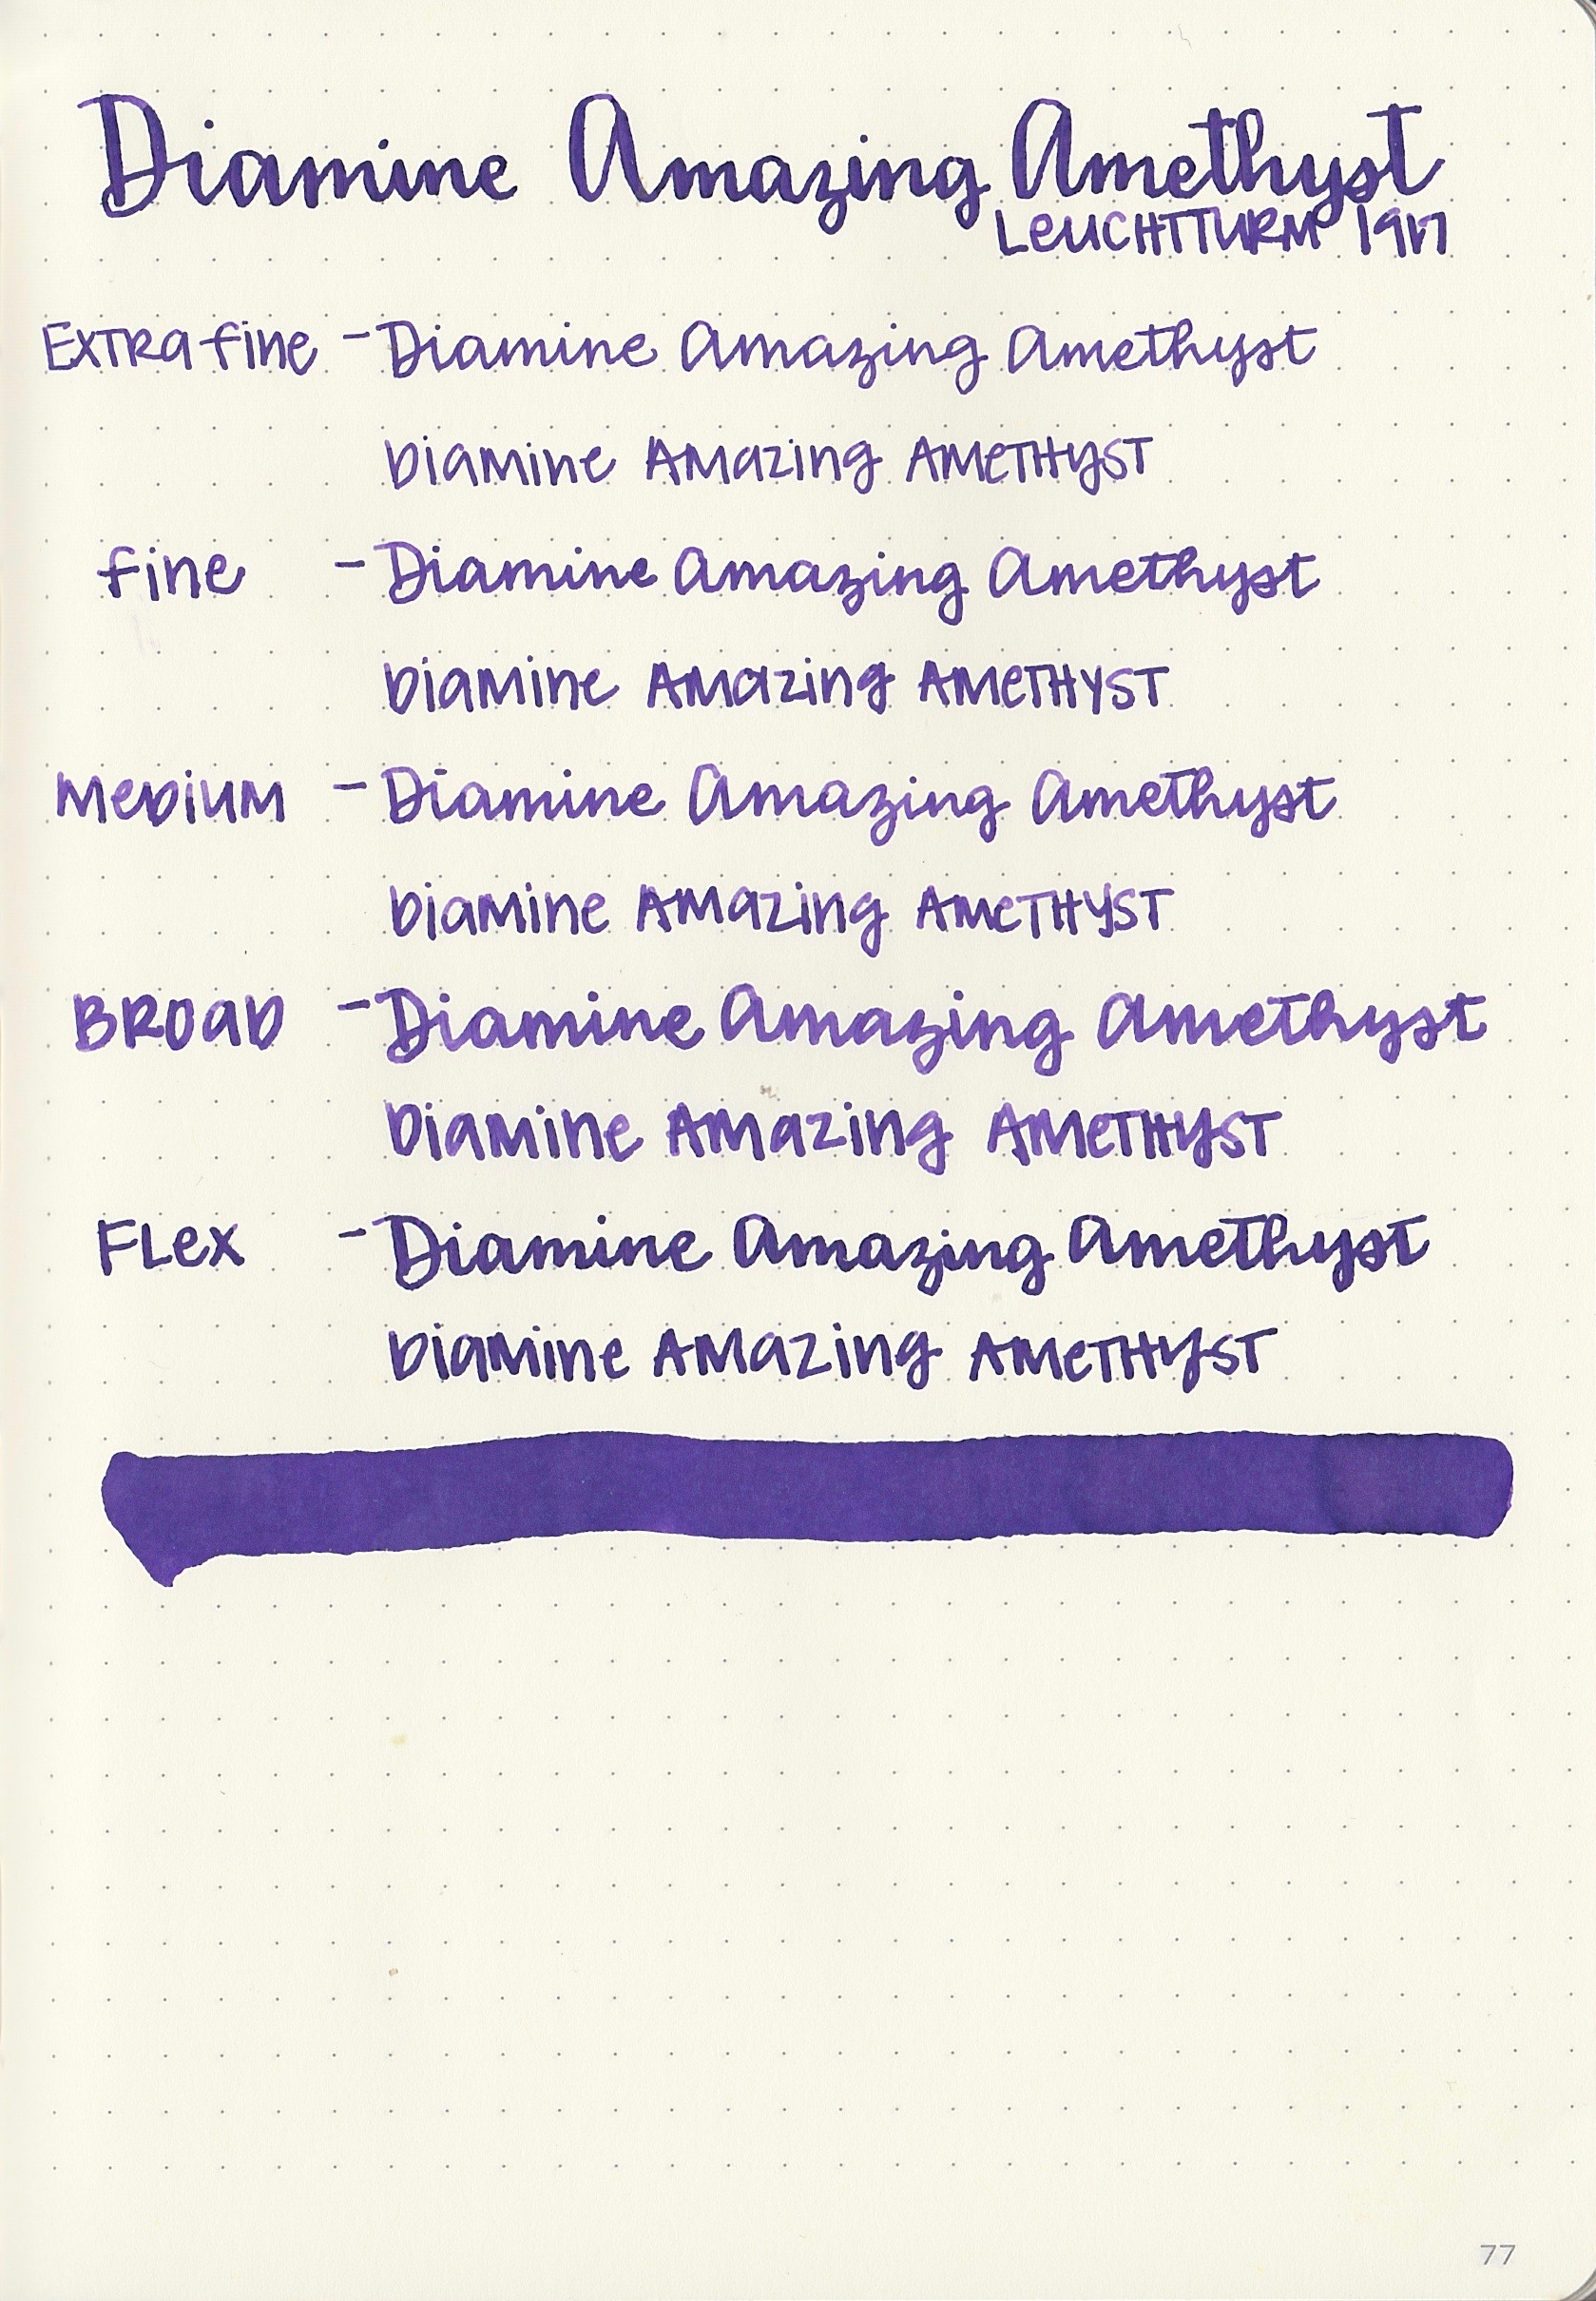 Diamine Amazing Amethyst
LeUCHTTURM 1917
EXTRA fine - Diamine Amazing Amethyst
DiaMine AMazing AMeTHyST
fine - Diamine Amazing Amethyst
DiaMine AMazing AMeTHYST
MeDiUM - Diamine Amazing Amethyst
DiaMine AMazing AMeTHyST
BROAD - Diamine Amazing Amethyst
DiaMine AMazing AMeTHyST
FLex - Diamine Amazing Amethyst
DiaMine AMazing AMeTHyST
77